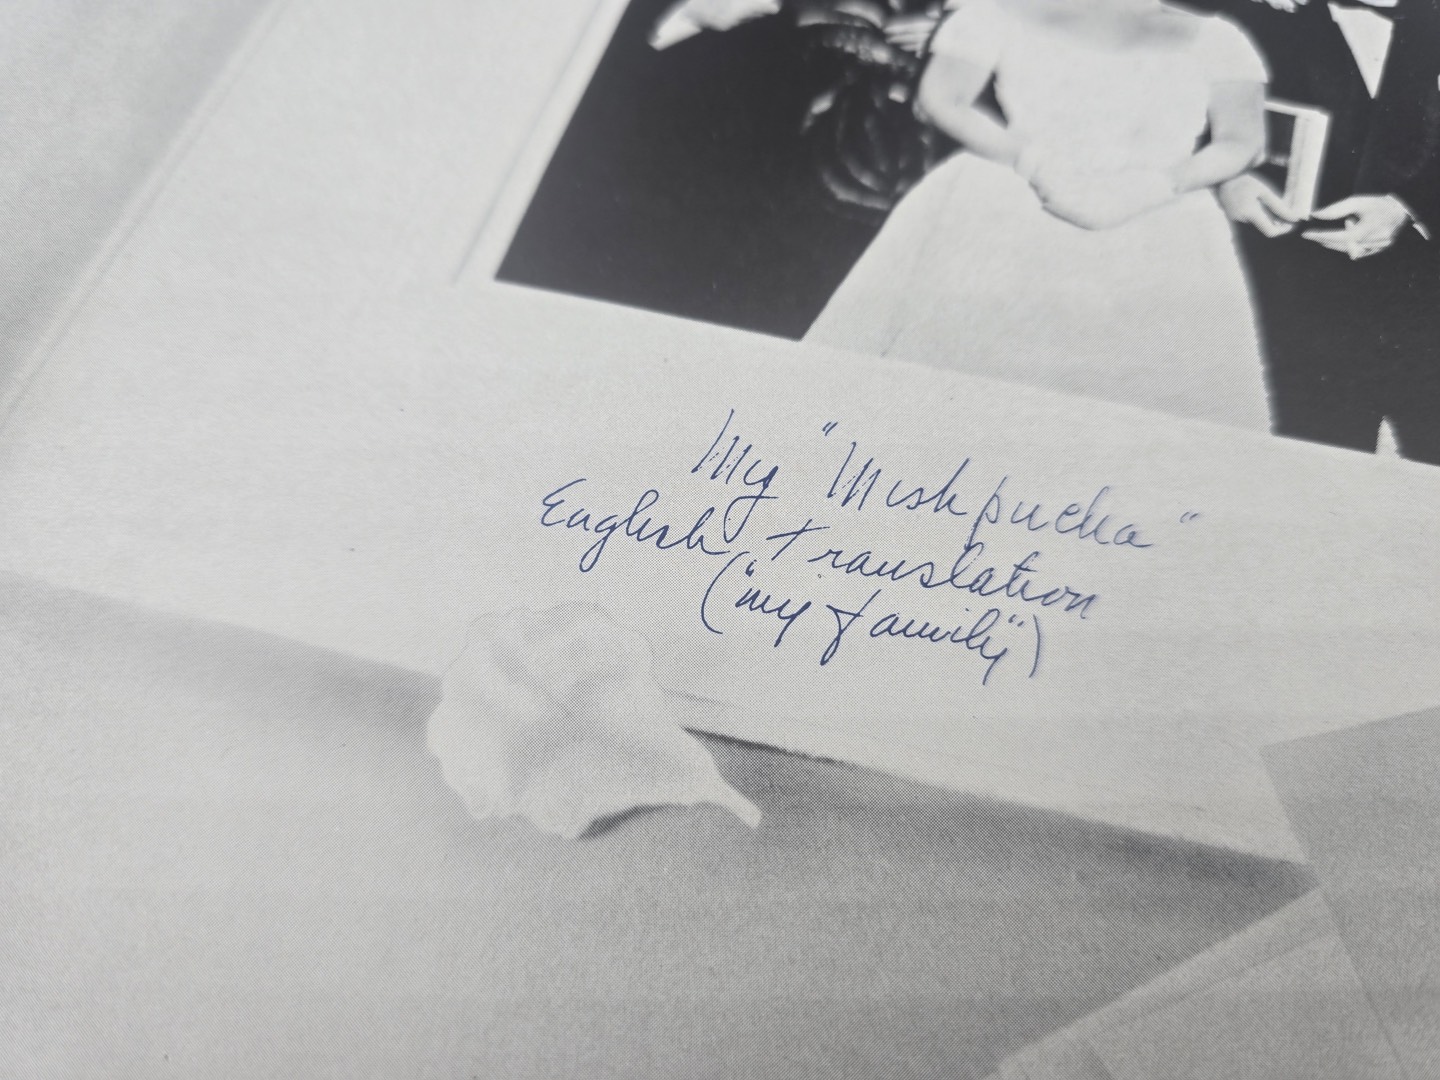 My "Mishpucha"
English translation
("my family")